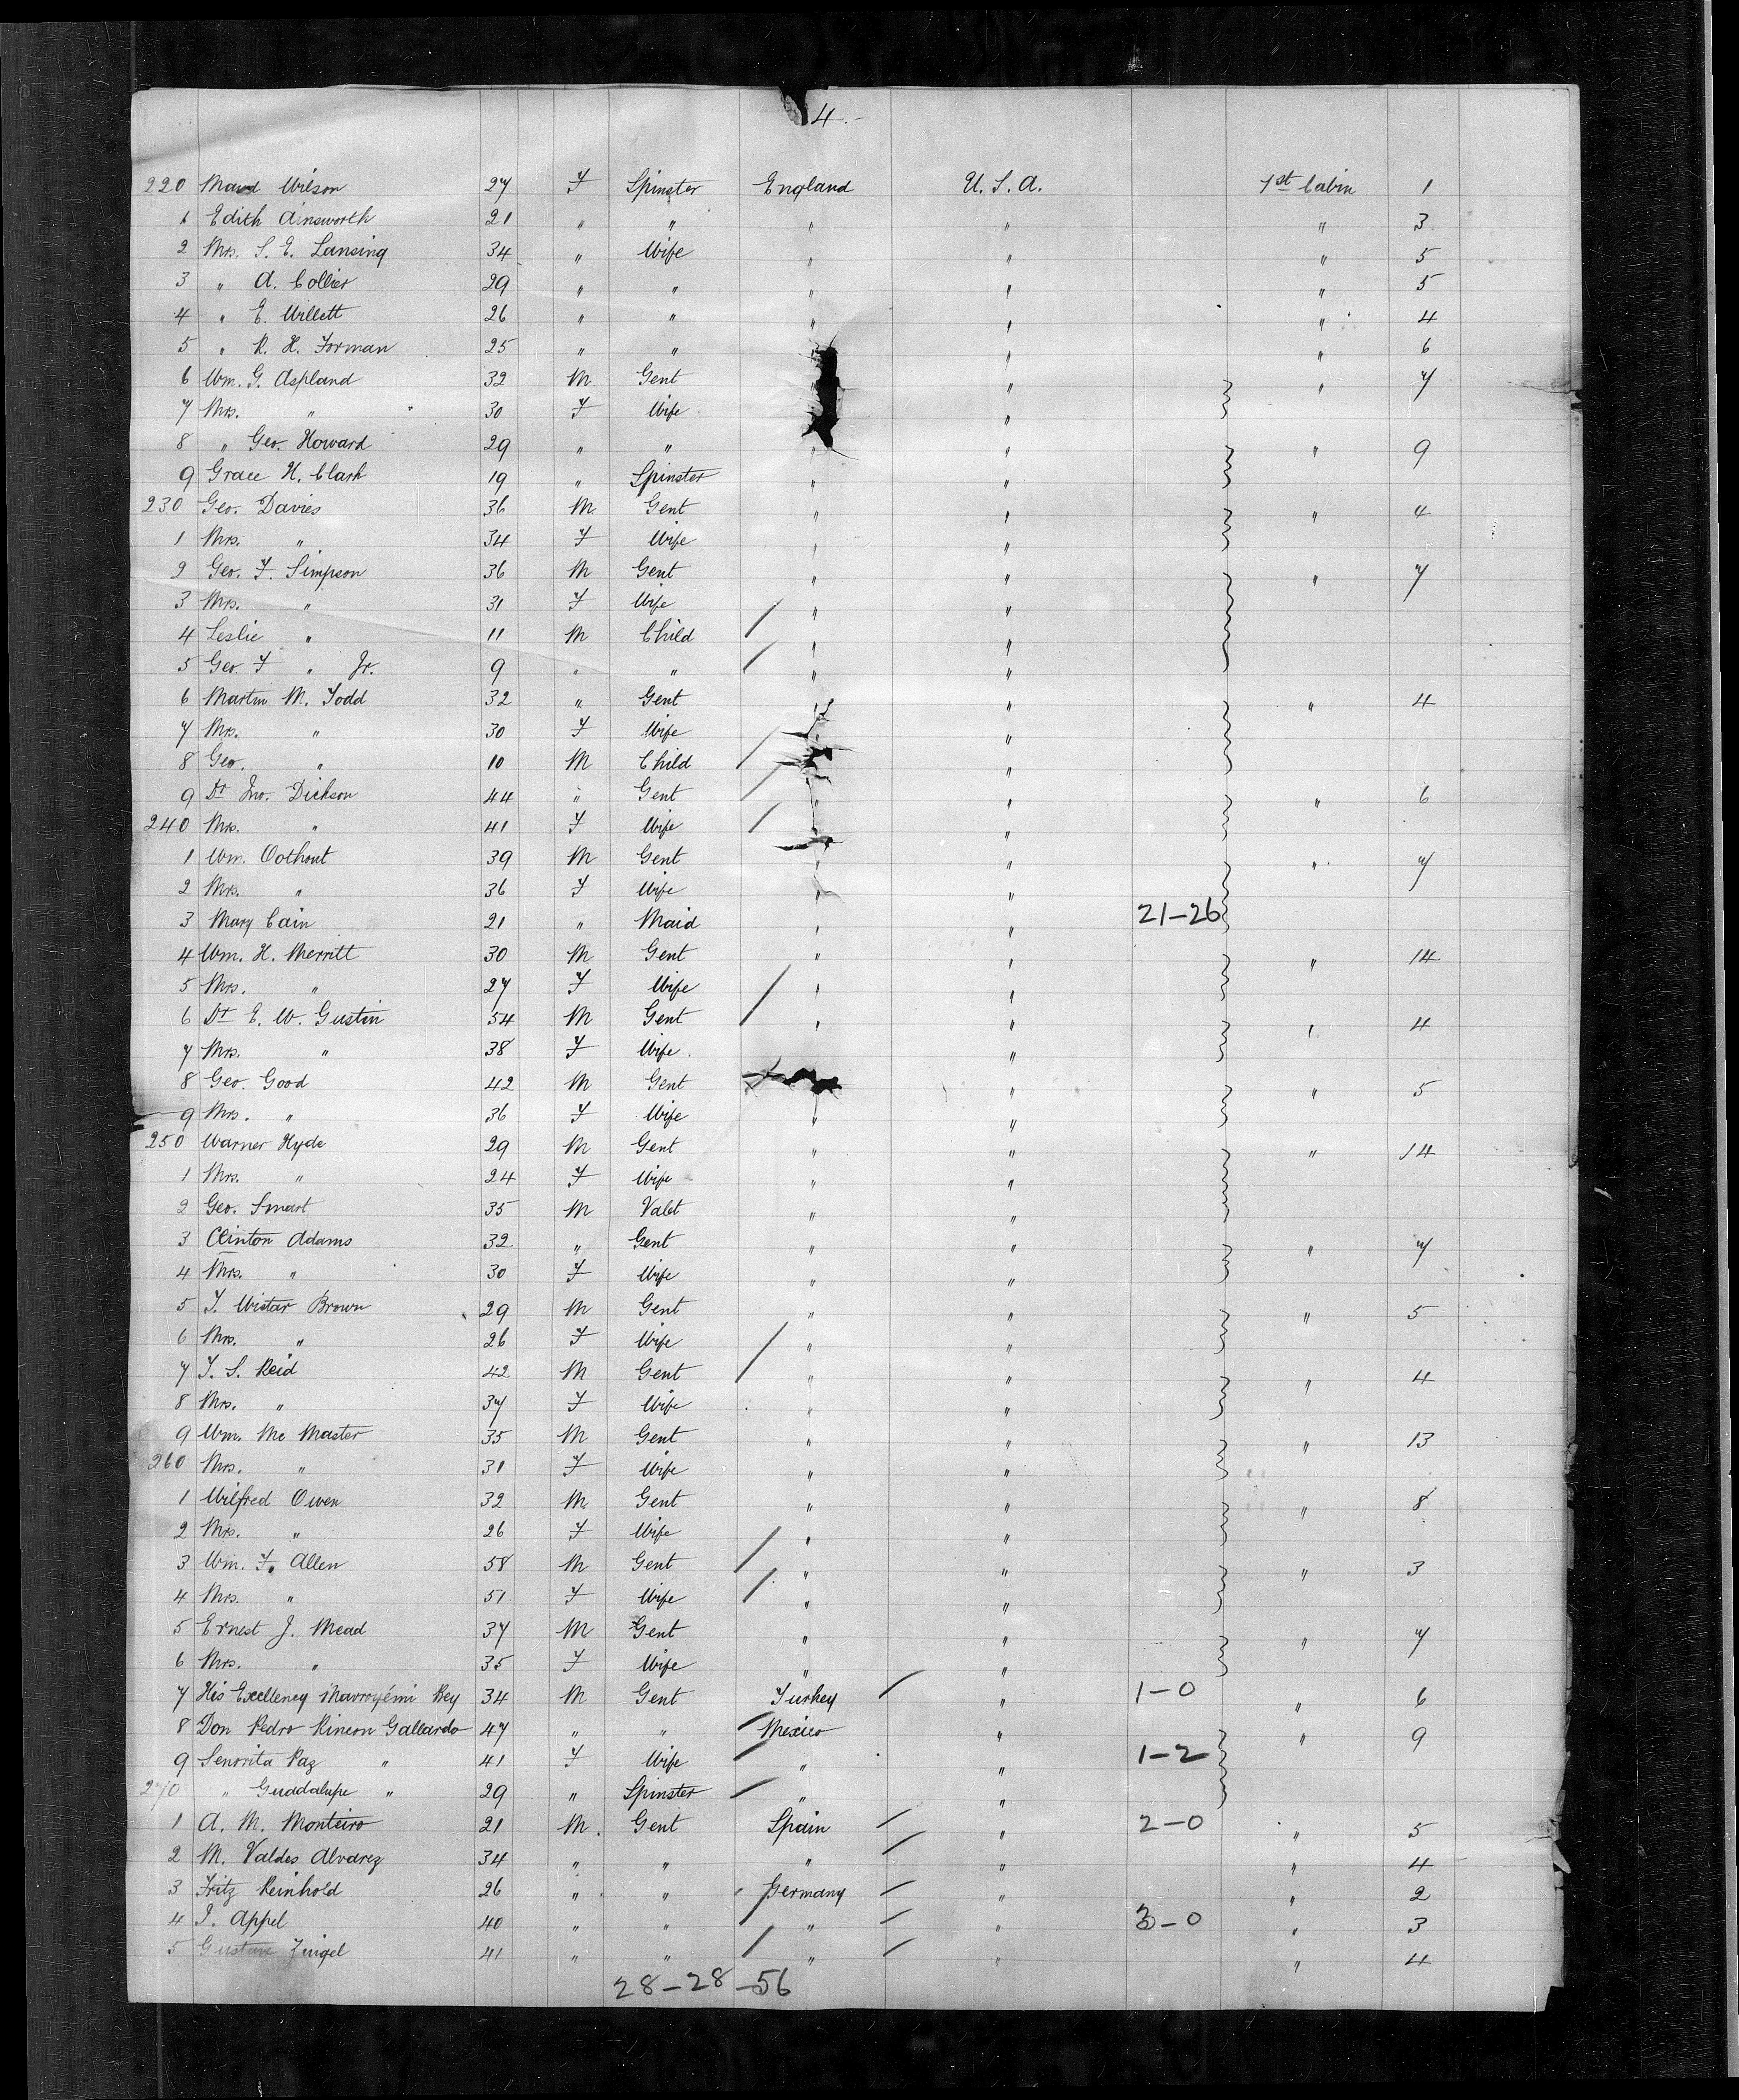 4.-
220 Maud Wilson 27 F Spinster England U.S.A. 1st Cabin 1
1 Edith Ainsworth 21 " " " " " 3
2 Mrs. S. E. Lansing 34 " Wife " " " 5
3 " A. Collier 29 " " " " " 5
4 " E. Willett 26 " " " " " 4
5 " R. H. Forman 25 " " " " 6
6 Wm. G. Aspland 32 M Gent " " 7
7 Mrs. " 30 F Wife "
8 " Geo. Howard 29 " " " " " 9
9 Grace H. Clark 19 " Spinster " "
230 Geo. Davies 36 M Gent " " " 4
1 Mrs. " 34 F Wife " "
2 Geo. F. Simpson 36 M Gent " " " 7
3 Mrs. " 31 F Wife " "
4 Leslie " 11 M Child " "
5 Geo. F " Jr. 9 " " " "
6 Martin M. Todd 32 " Gent " " 4
7 Mrs. " 30 F Wife "
8 Geo. " 10 M Child "
9 Dr Jno. Dickson 44 " Gent " " " 6
240 Mrs. " 41 F Wife " "
1 Wm. Oothout 39 M Gent " " " 7
2 Mrs. " 36 F Wife " "
3 Mary Cain 21 " Maid " " 21-26
4 Wm. H. Merritt 30 M Gent " " " 14
5 Mrs. " 27 F Wife " "
6 Dr E. W. Gustin 54 M Gent " " " 4
7 Mrs. " 38 F Wife "
8 Geo. Good 42 M Gent " " 5
9 Mrs. " 36 F Wife " "
250 Warner Hyde 29 M Gent " " " 14
1 Mrs. " 24 F Wife " "
2 Geo. Smart 35 M Valet " "
3 Clinton Adams 32 " Gent " " " 7
4 Mrs. " 30 F Wife " "
5 T. Wistar Brown 29 M Gent " " " 5
6 Mrs. " 26 F Wife " "
7 T. S. Reid 42 M Gent " " " 4
8 Mrs. " 37 F Wife " "
9 Wm. Mc Master 35 M Gent " " " 13
260 Mrs. " 31 F Wife " "
1 Wilfred Owen 32 M Gent " " " 8
2 Mrs. " 26 F Wife " "
3 Wm. F. Allen 58 M Gent " " " 3
4 Mrs. " 51 F Wife " "
5 Ernest J. Mead 37 M Gent " " " 7
6 Mrs. " 35 F Wife " "
7 His Excellency Mavroyéni Bey 34 M Gent Turkey " 1-0 " 6
8 Don Pedro Rincon Gallardo 47 " " Mexico " " 9
9 Senorita Paz " 41 F Wife " " 1-2
270 " Guadalupe " 29 " Spinster " "
1 A. M. Monteiro 21 M. Gent Spain " 2-0 " 5
2 M. Valdes Alvarez 34 " " " " " 4
3 Fritz Reinhold 26 " " Germany " " 2
4 I. Appel 40 " " " " 3-0 " 3
5 Gustave 41 " " " " " 4
28-28-56